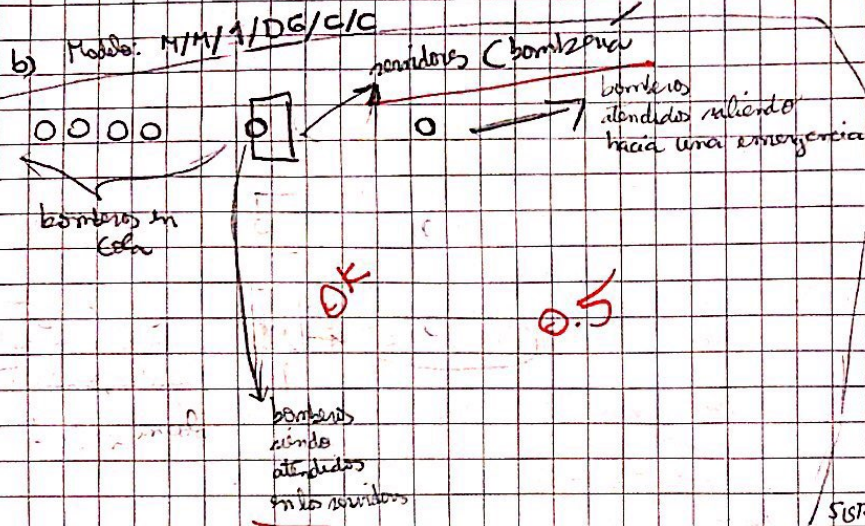 b) Modelo: M/M/1/DG/C/C
servidores (bombería
bomberos
atendidos saliendo
hacia una emergencia
bomberos en
Cola
OK
0.5
bomberos
siendo
atendidos
en los servidores
SIST